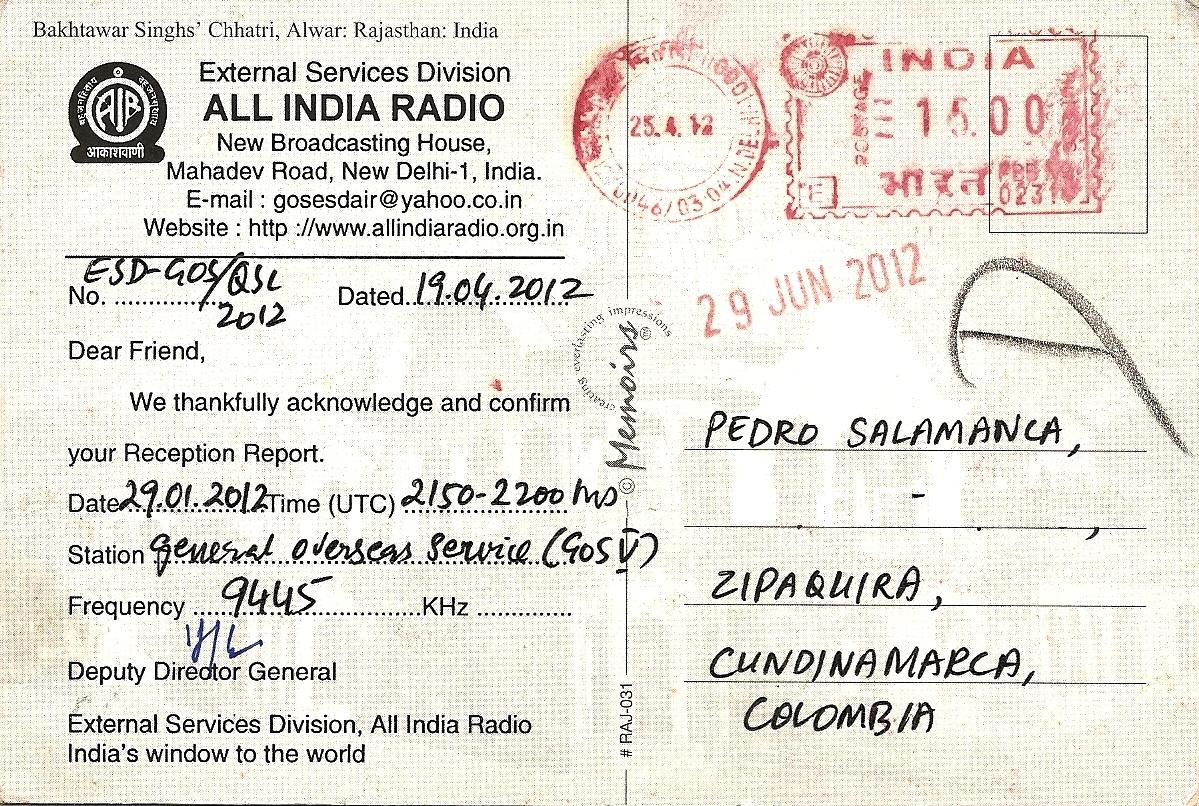 Bakhtawar Singhs' Chhatri, Alwar: Rajasthan: India
AIR
आकाशवाणी
External Services Division
ALL INDIA RADIO
New Broadcasting House,
Mahadev Road, New Delhi-1, India.
E-mail : gosesdair@yahoo.co.in
Website : http ://www.allindiaradio.org.in
No. ESD-GOS/QSL
2012
Dated 19.04.2012
Dear Friend,
We thankfully acknowledge and confirm
your Reception Report.
Date 29.01.2012 Time (UTC) 2150-2200 hrs
Station General Overseas Service (GOS V)
Frequency 9445 KHz
Deputy Director General
External Services Division, All India Radio
India's window to the world
creating everlasting impressions
© Memoirs ®
# RAJ-031
25.4.12
INDIA
POSTAGE
15.00
भारत
29 JUN 2012
PEDRO SALAMANCA,
- ,
ZIPAQUIRA,
CUNDINAMARCA,
COLOMBIA